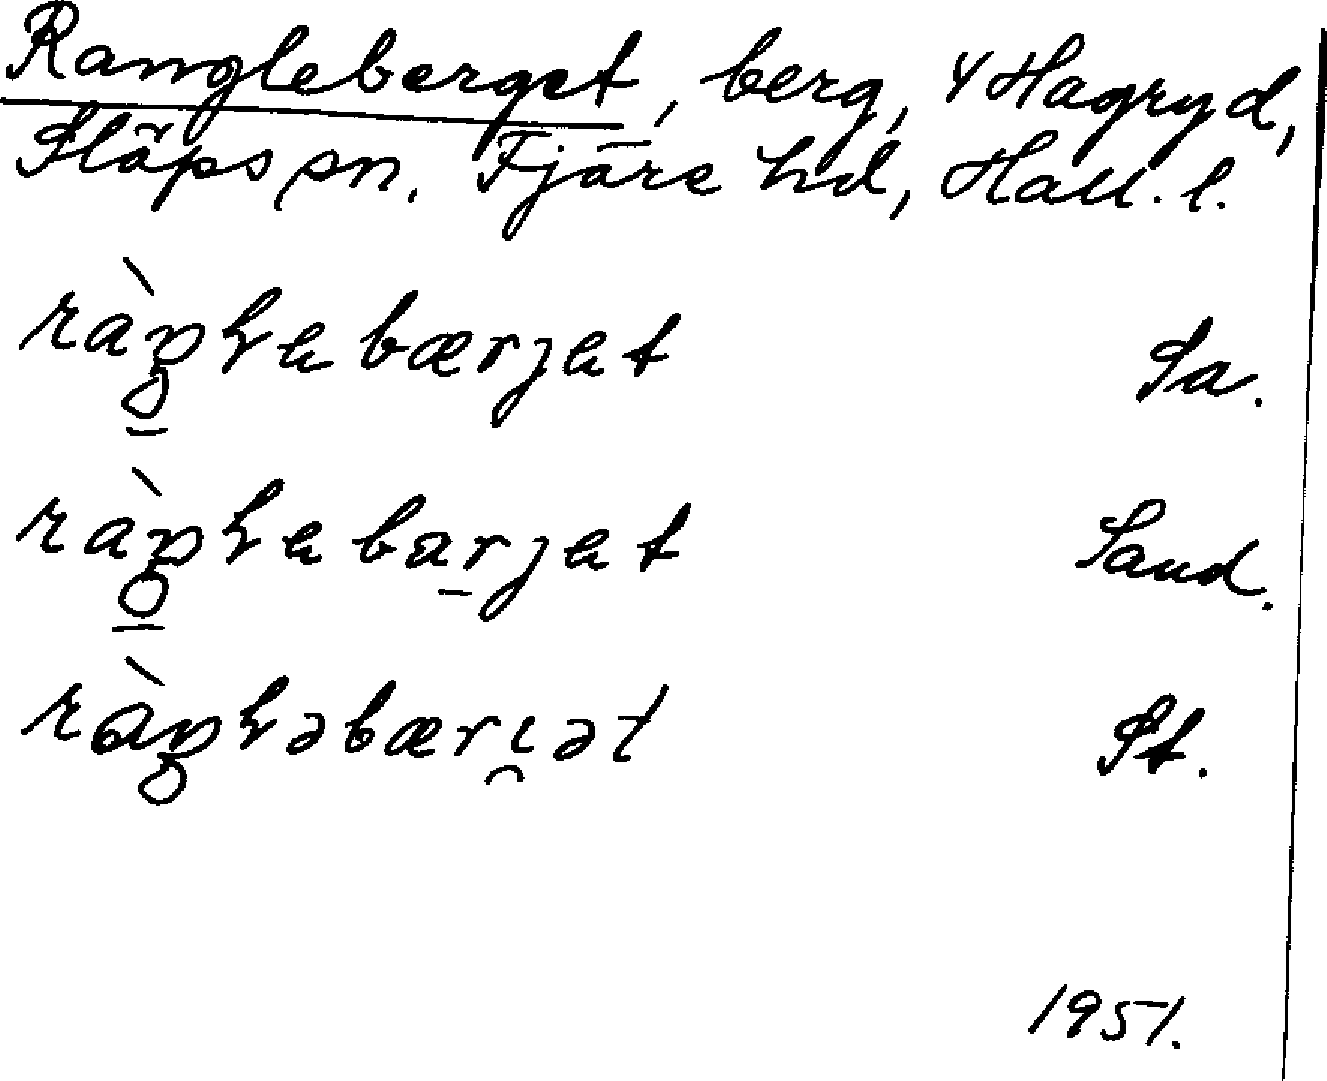 Rangleberget, berg, 4 Hagryd,
Släps sn. Fjäre hd, Hall. l.
ràŋɫebærjet Sa.
ràŋɫebarjet Sand.
ràŋɫəbæri̯ət St.
1951.